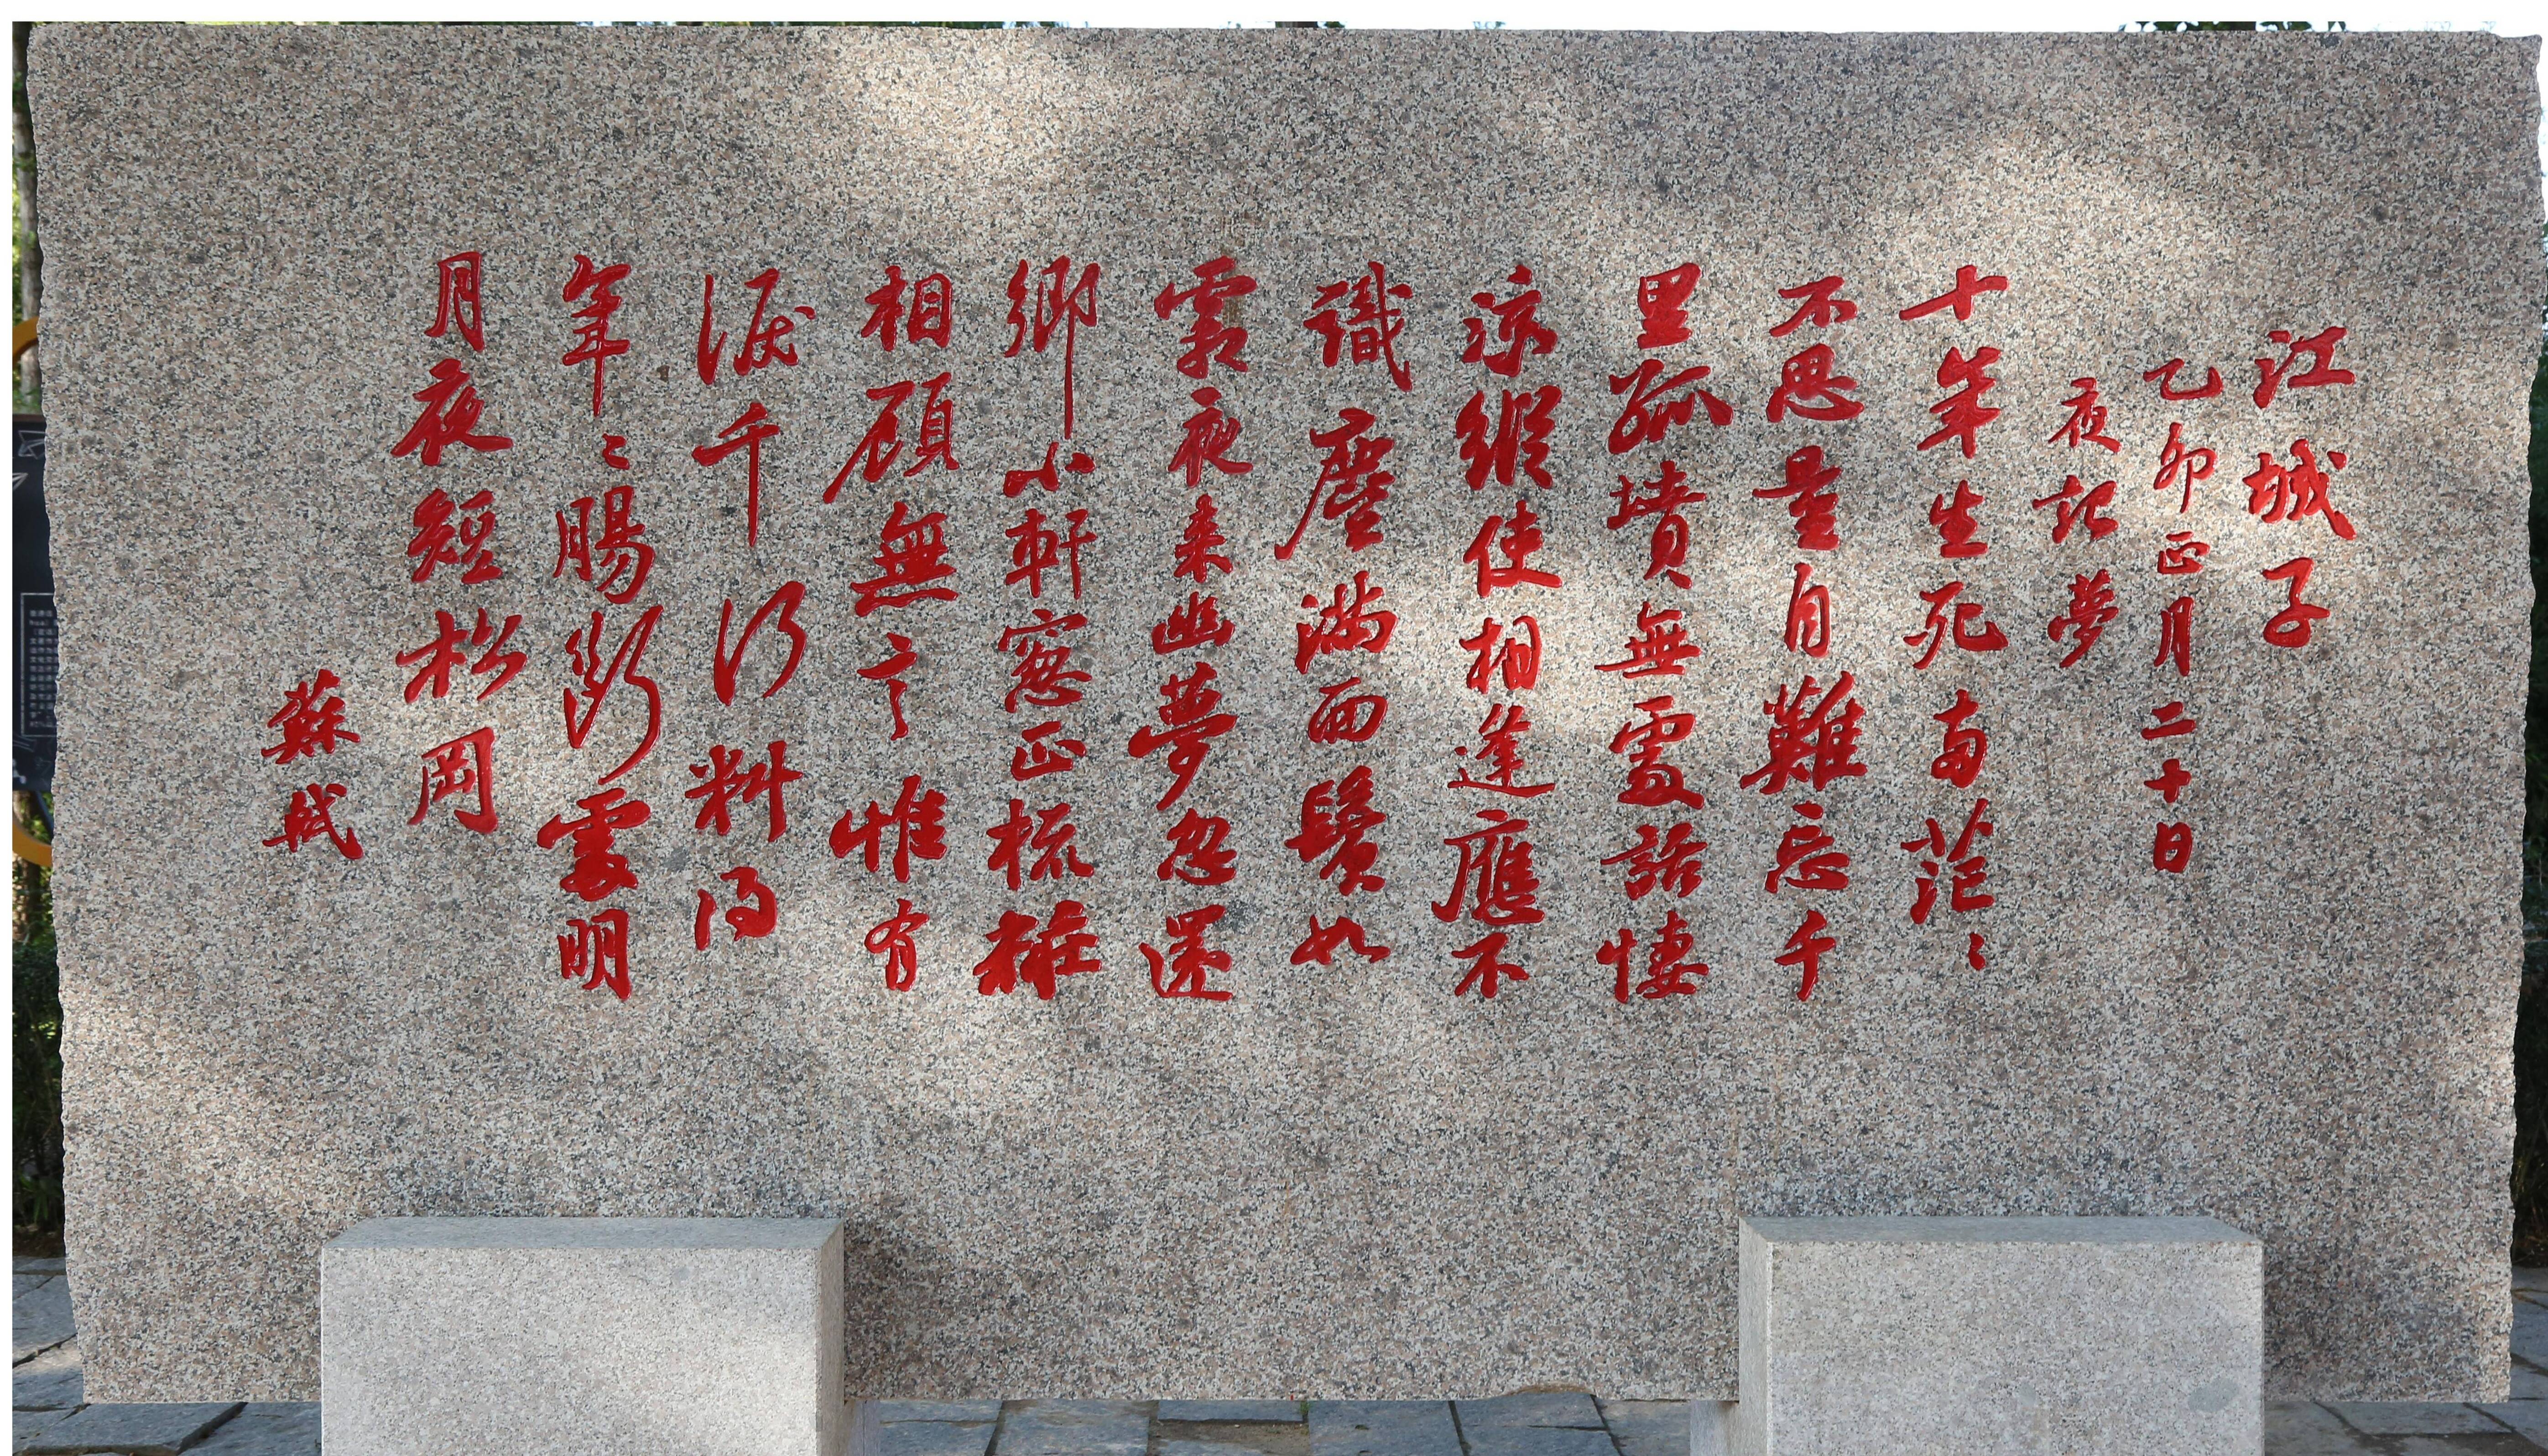 江城子
乙卯正月二十日
夜記夢
十年生死両茫〻
不思量自難忘千
里孤墳無處話悽
涼縱使相逢應不
識塵滿面鬢如
霜夜來幽夢忽還
鄉小軒窓正梳粧
相顧無言惟有
淚千行料得
年〻腸斷處明
月夜短松岡
蘇軾